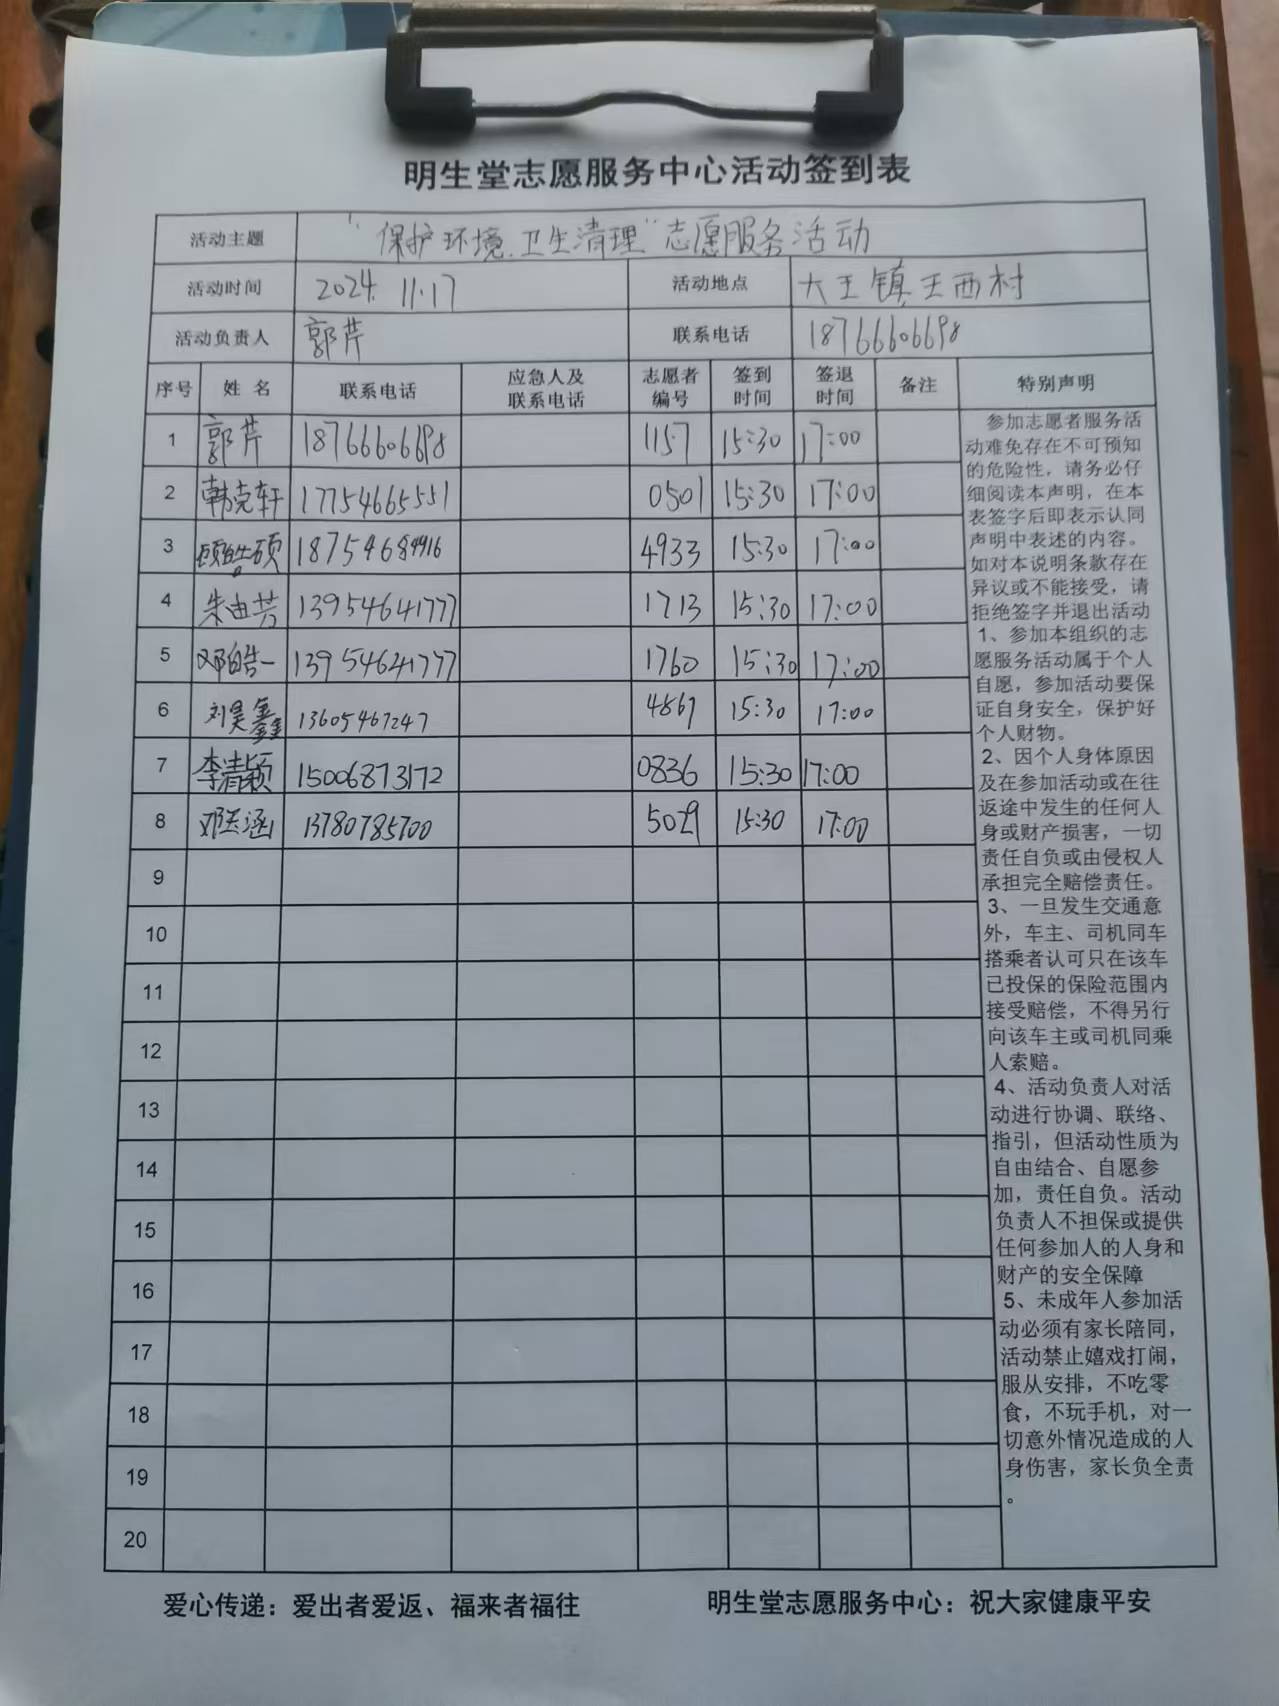 明生堂志愿服务中心活动签到表
活动主题 “保护环境、卫生清理”志愿服务活动
活动时间 2024.11.17 活动地点 大王镇王西村
活动负责人 郭芹 联系电话 18766606698
序号 姓名 联系电话 应急人及联系电话 志愿者编号 签到时间 签退时间 备注 特别声明
1 郭芹 18766606698 1157 15:30 17:00
2 韩克轩 17754665551 0501 15:30 17:00
3 顾皓硕 18754684916 4933 15:30 17:00
4 朱曲芳 13954641777 1713 15:30 17:00
5 邓皓一 13954641777 1760 15:30 17:00
6 刘昊鑫 13605467247 4867 15:30 17:00
7 李清颖 15006873172 0836 15:30 17:00
8 邓 涵 13780785700 5029 15:30 17:00
9
10
11
12
13
14
15
16
17
18
19
20
参加志愿者服务活
动难免存在不可预知
的危险性，请务必仔
细阅读本声明，在本
表签字后即表示认同
声明中表述的内容。
如对本说明条款存在
异议或不能接受，请
拒绝签字并退出活动
1、参加本组织的志
愿服务活动属于个人
自愿，参加活动要保
证自身安全，保护好
个人财物。
2、因个人身体原因
及在参加活动或在往
返途中发生的任何人
身或财产损害，一切
责任自负或由侵权人
承担完全赔偿责任。
3、一旦发生交通意
外，车主、司机同车
搭乘者认可只在该车
已投保的保险范围内
接受赔偿，不得另行
向该车主或司机同乘
人索赔。
4、活动负责人对活
动进行协调、联络、
指引，但活动性质为
自由结合、自愿参
加，责任自负。活动
负责人不担保或提供
任何参加人的人身和
财产的安全保障
5、未成年人参加活
动必须有家长陪同，
活动禁止嬉戏打闹，
服从安排，不吃零
食，不玩手机，对一
切意外情况造成的人
身伤害，家长负全责
。
爱心传递：爱出者爱返、福来者福往 明生堂志愿服务中心：祝大家健康平安